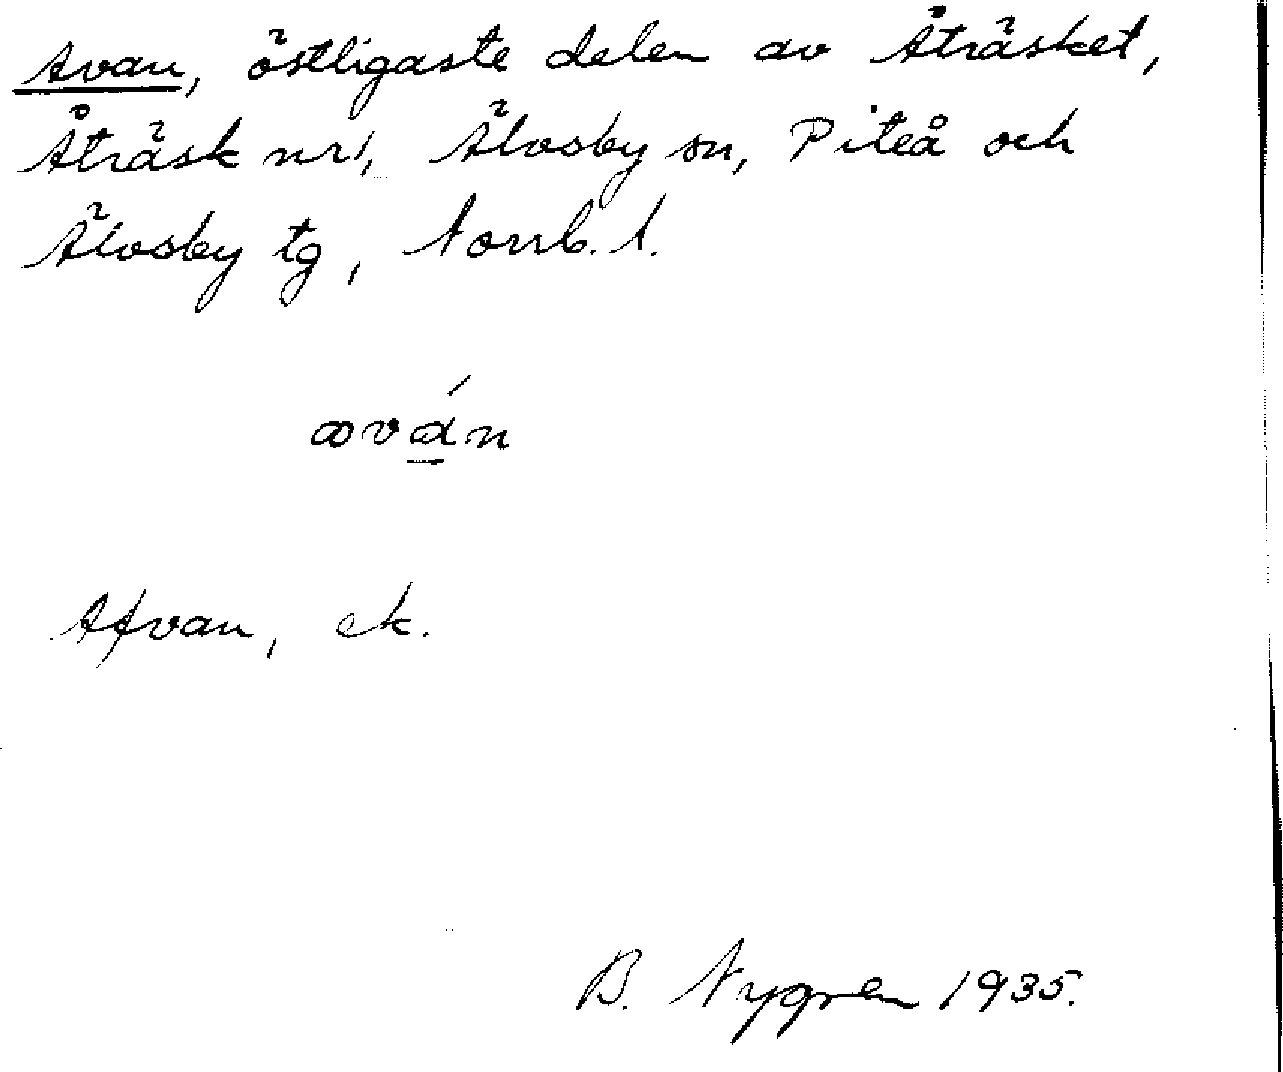 Avan, östligaste delen av Åträsket,
Åträsk nr 1, Älvsby sn, Piteå och
Älvsby tg, Norrb. l.
aván
Afvan, ek.
B. Nygren 1935.